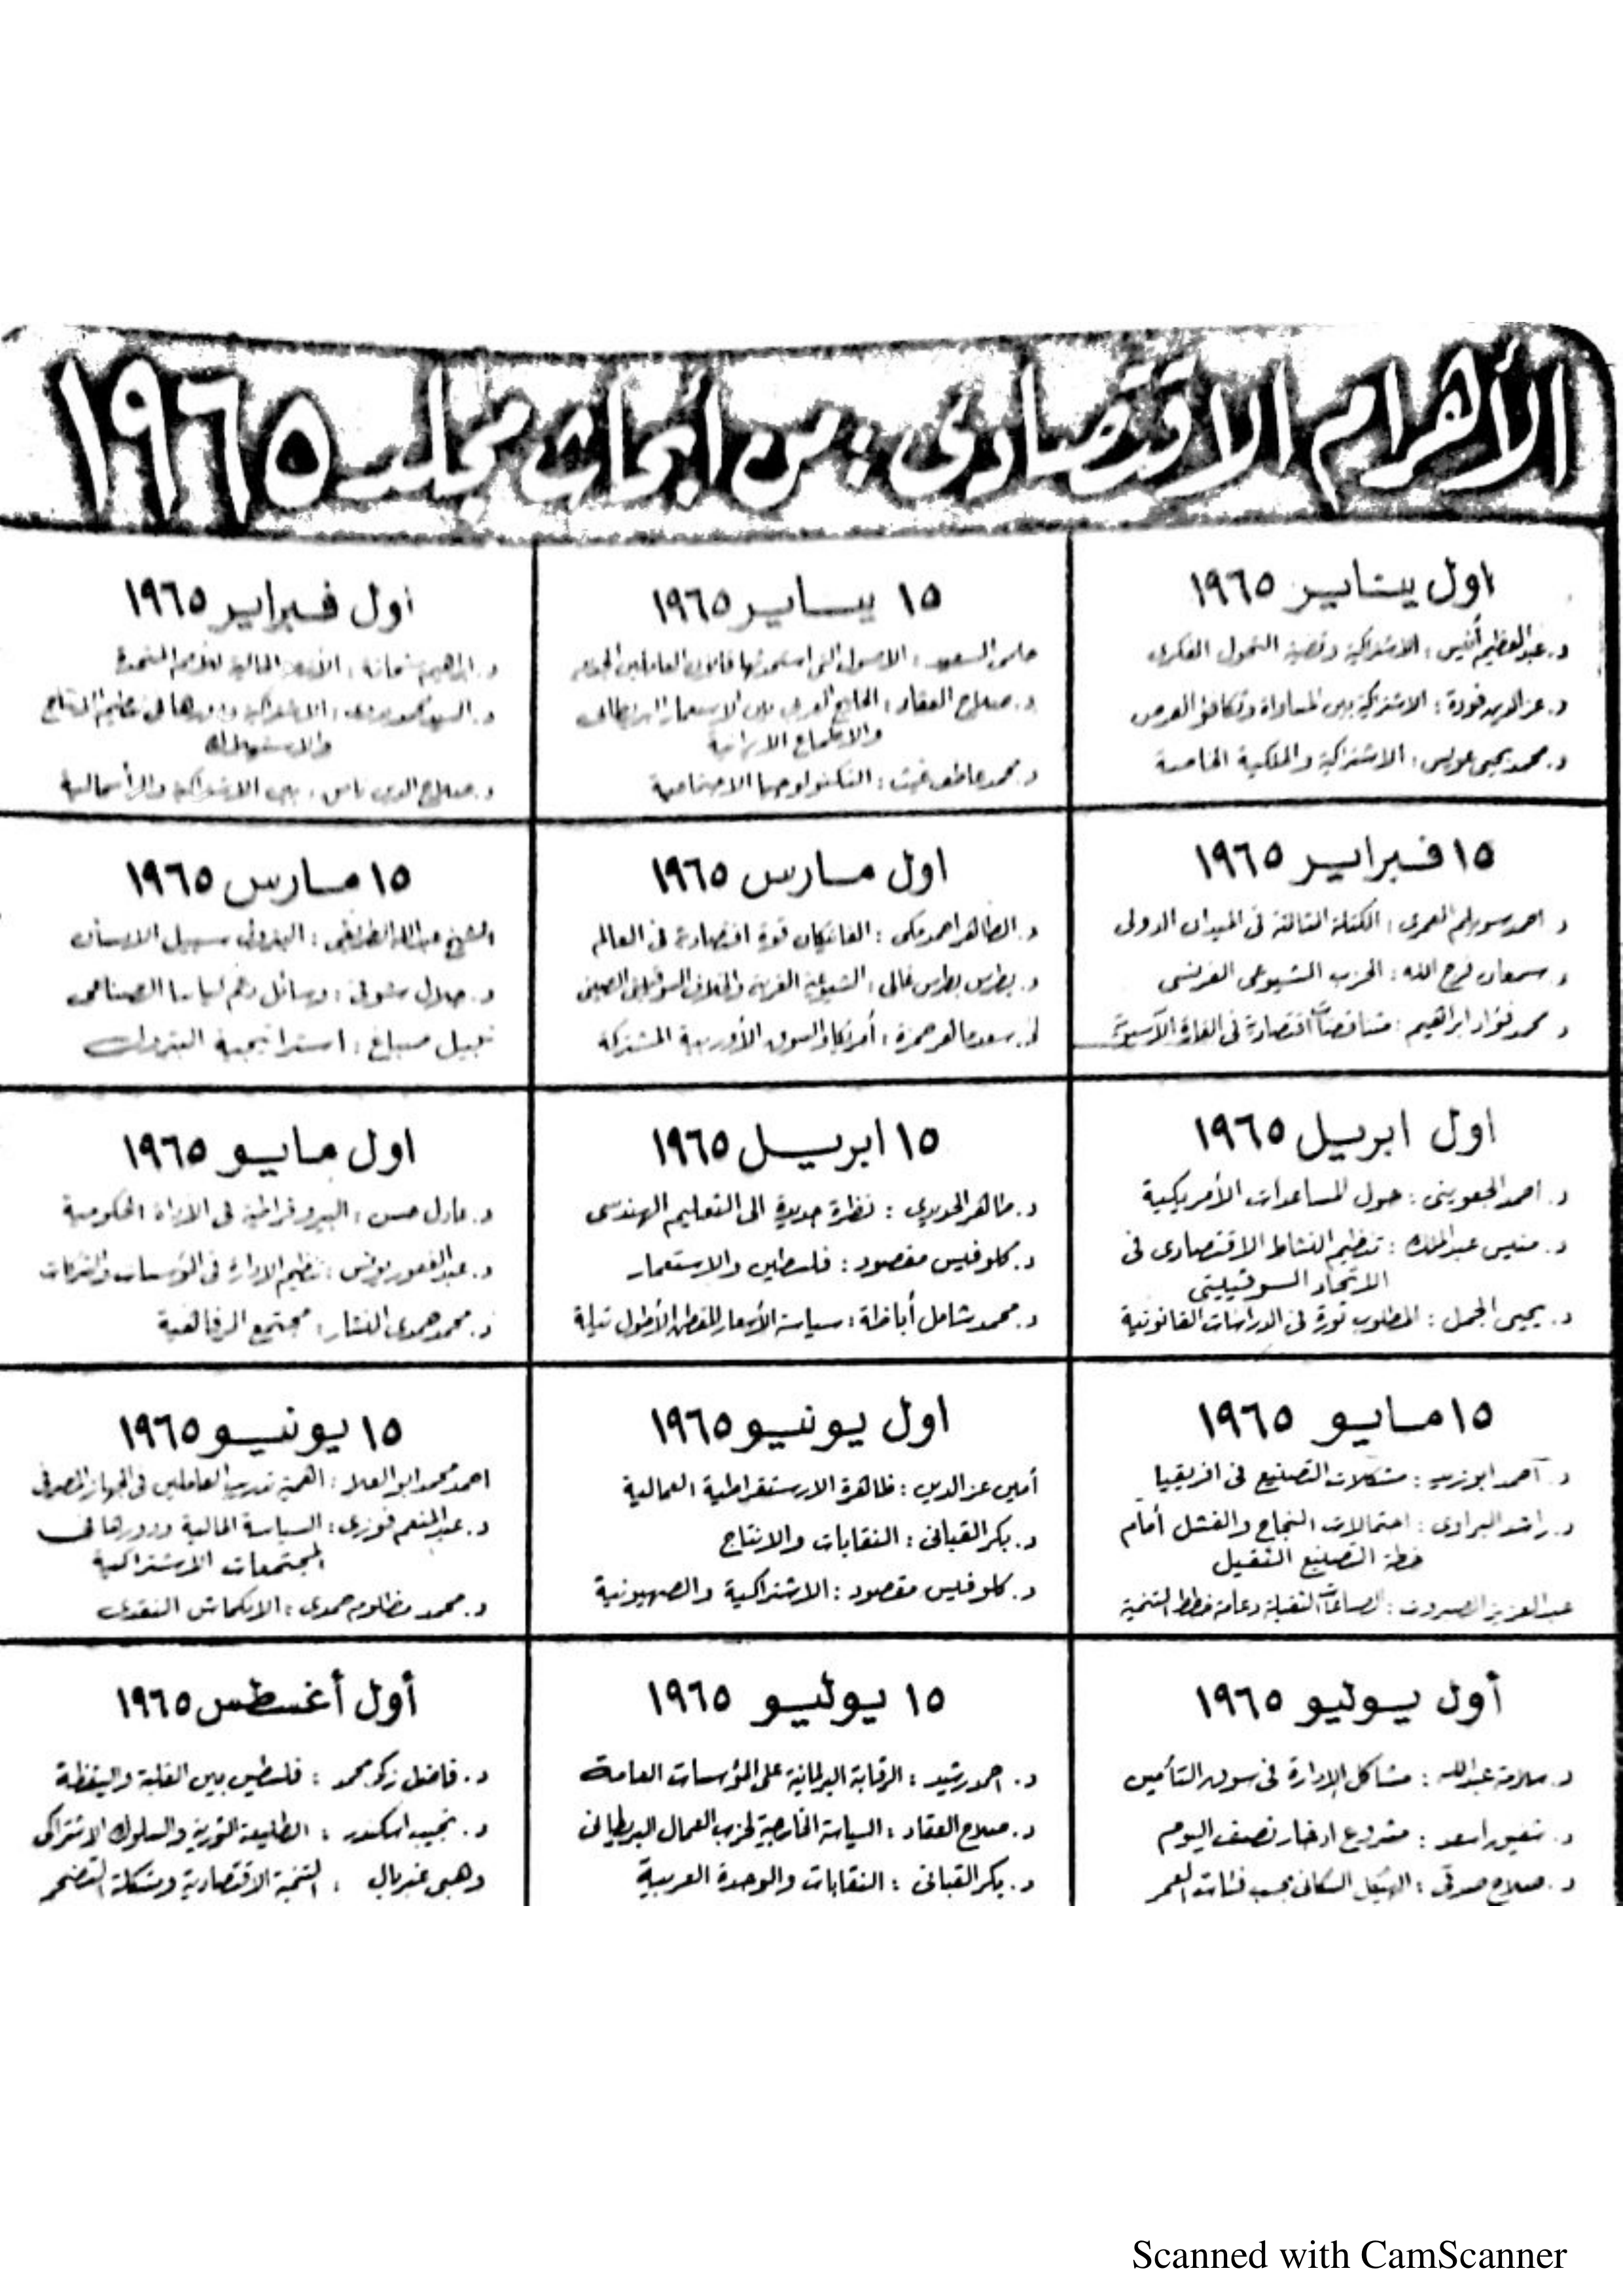 الأهرام الاقتصادى : من أبحاث مجلد ١٩٦٥
اول يناير ١٩٦٥
د. عبدالعظيم أنيس : الاشتراكية وقضية التحول الفكرى
د. عزالدين فودة : الاشتراكية بين المساواة وتكافؤ الفرص
د. محمد يحيى عويس : الاشتراكية والملكية الخاصة
١٥ يناير ١٩٦٥
حلمى السعيد : الاصول التى استحدثها قانون العاملين الجديد
د. صلاح العقاد : الخليج العربى بين الاستعمار البريطانى
والاطماع الايرانية
د. محمد عاطف غيث : التكنولوجيا الاجتماعية
اول فبراير ١٩٦٥
د. ابراهيم شحاتة : الأزمة المالية للأمم المتحدة
د. السيد : الاشتراكية ودورها فى تنظيم الانتاج
والاستهلاك
د. صلاح الدين نامق : بين الاشتراكية والرأسمالية
١٥ فبراير ١٩٦٥
د. احمد سويلم العمرى : الكتلة الثالثة فى الميدان الدولى
د. سمعان فرج الله : الحزب الشيوعى الفرنسى
د. محمد فؤاد ابراهيم : متناقضات اقتصادية فى القارة الآسيوية
اول مارس ١٩٦٥
د. الطاهر احمد مكى : الفاتيكان قوة اقتصادية فى العالم
د. بطرس بطرس غالى : الشيوعية الغربية والخلاف السوفيتى الصينى
د. سعد ماهر حمزة : أمريكا والسوق الأوربية المشتركة
١٥ مارس ١٩٦٥
الشيخ عبدالله الطريقى : البترول سبيل الانسان
د. جلال شوقى : وسائل دعم كياننا الصناعى
نبيل صباغ : استراتيجية البترول
اول ابريل ١٩٦٥
د. احمد الجعوينى : حول المساعدات الأمريكية
د. منيس عبدالملك : تنظيم النشاط الاقتصادى فى
الاتحاد السوفييتى
د. يحيى الجمل : المطلوب ثورة فى الدراسات القانونية
١٥ ابريل ١٩٦٥
د. طاهر الحديدى : نظرة جديدة الى التعليم الهندسى
د. كلوفيس مقصود : فلسطين والاستعمار
د. محمد شامل أباظة : سياسة الأسعار للقطن الأطول تيلة
اول مايو ١٩٦٥
د. عادل حسن : البيروقراطية فى الادارة الحكومية
د. عبدالغفور يونس : تنظيم الادارة فى المؤسسات والشركات
د. محمد حمدى النشار : مجتمع الرفاهية
١٥ مايو ١٩٦٥
د. احمد ابوزيد : مشكلات التصنيع فى افريقيا
د. راشد البراوى : احتمالات النجاح والفشل أمام
خطة التصنيع الثقيل
عبدالعزيز : الصناعات الثقيلة دعامة خطط التنمية
اول يونيو ١٩٦٥
أمين عزالدين : ظاهرة الارستقراطية العمالية
د. بكر القبانى : النقابات والانتاج
د. كلوفيس مقصود : الاشتراكية والصهيونية
١٥ يونيو ١٩٦٥
احمد محمد ابوالعلا : اهمية تدريب العاملين فى الجهاز المصرفى
د. عبدالمنعم فوزى : السياسة المالية ودورها فى
المجتمعات الاشتراكية
د. محمد مظلوم حمدى : الانكماش النقدى
أول يوليو ١٩٦٥
د. سلامة عبدالله : مشاكل الادارة فى سوق التأمين
د. شفيق اسعد : مشروع ادخار نصف اليوم
د. صلاح صدقى : الهيكل السكانى بحسب فئات العمر
١٥ يوليو ١٩٦٥
د. احمد رشيد : الرقابة البرلمانية على المؤسسات العامة
د. صلاح العقاد : السياسة الخارجية لحزب العمال البريطانى
د. بكر القبانى : النقابات والوحدة العربية
أول أغسطس ١٩٦٥
د. فاضل زكى محمد : فلسطين بين الغفلة واليقظة
د. نجيب اسكندر : الطليعة الثورية والسلوك الاشتراكى
وهبى غبريال : التنمية الاقتصادية ومشكلة التضخم
Scanned with CamScanner